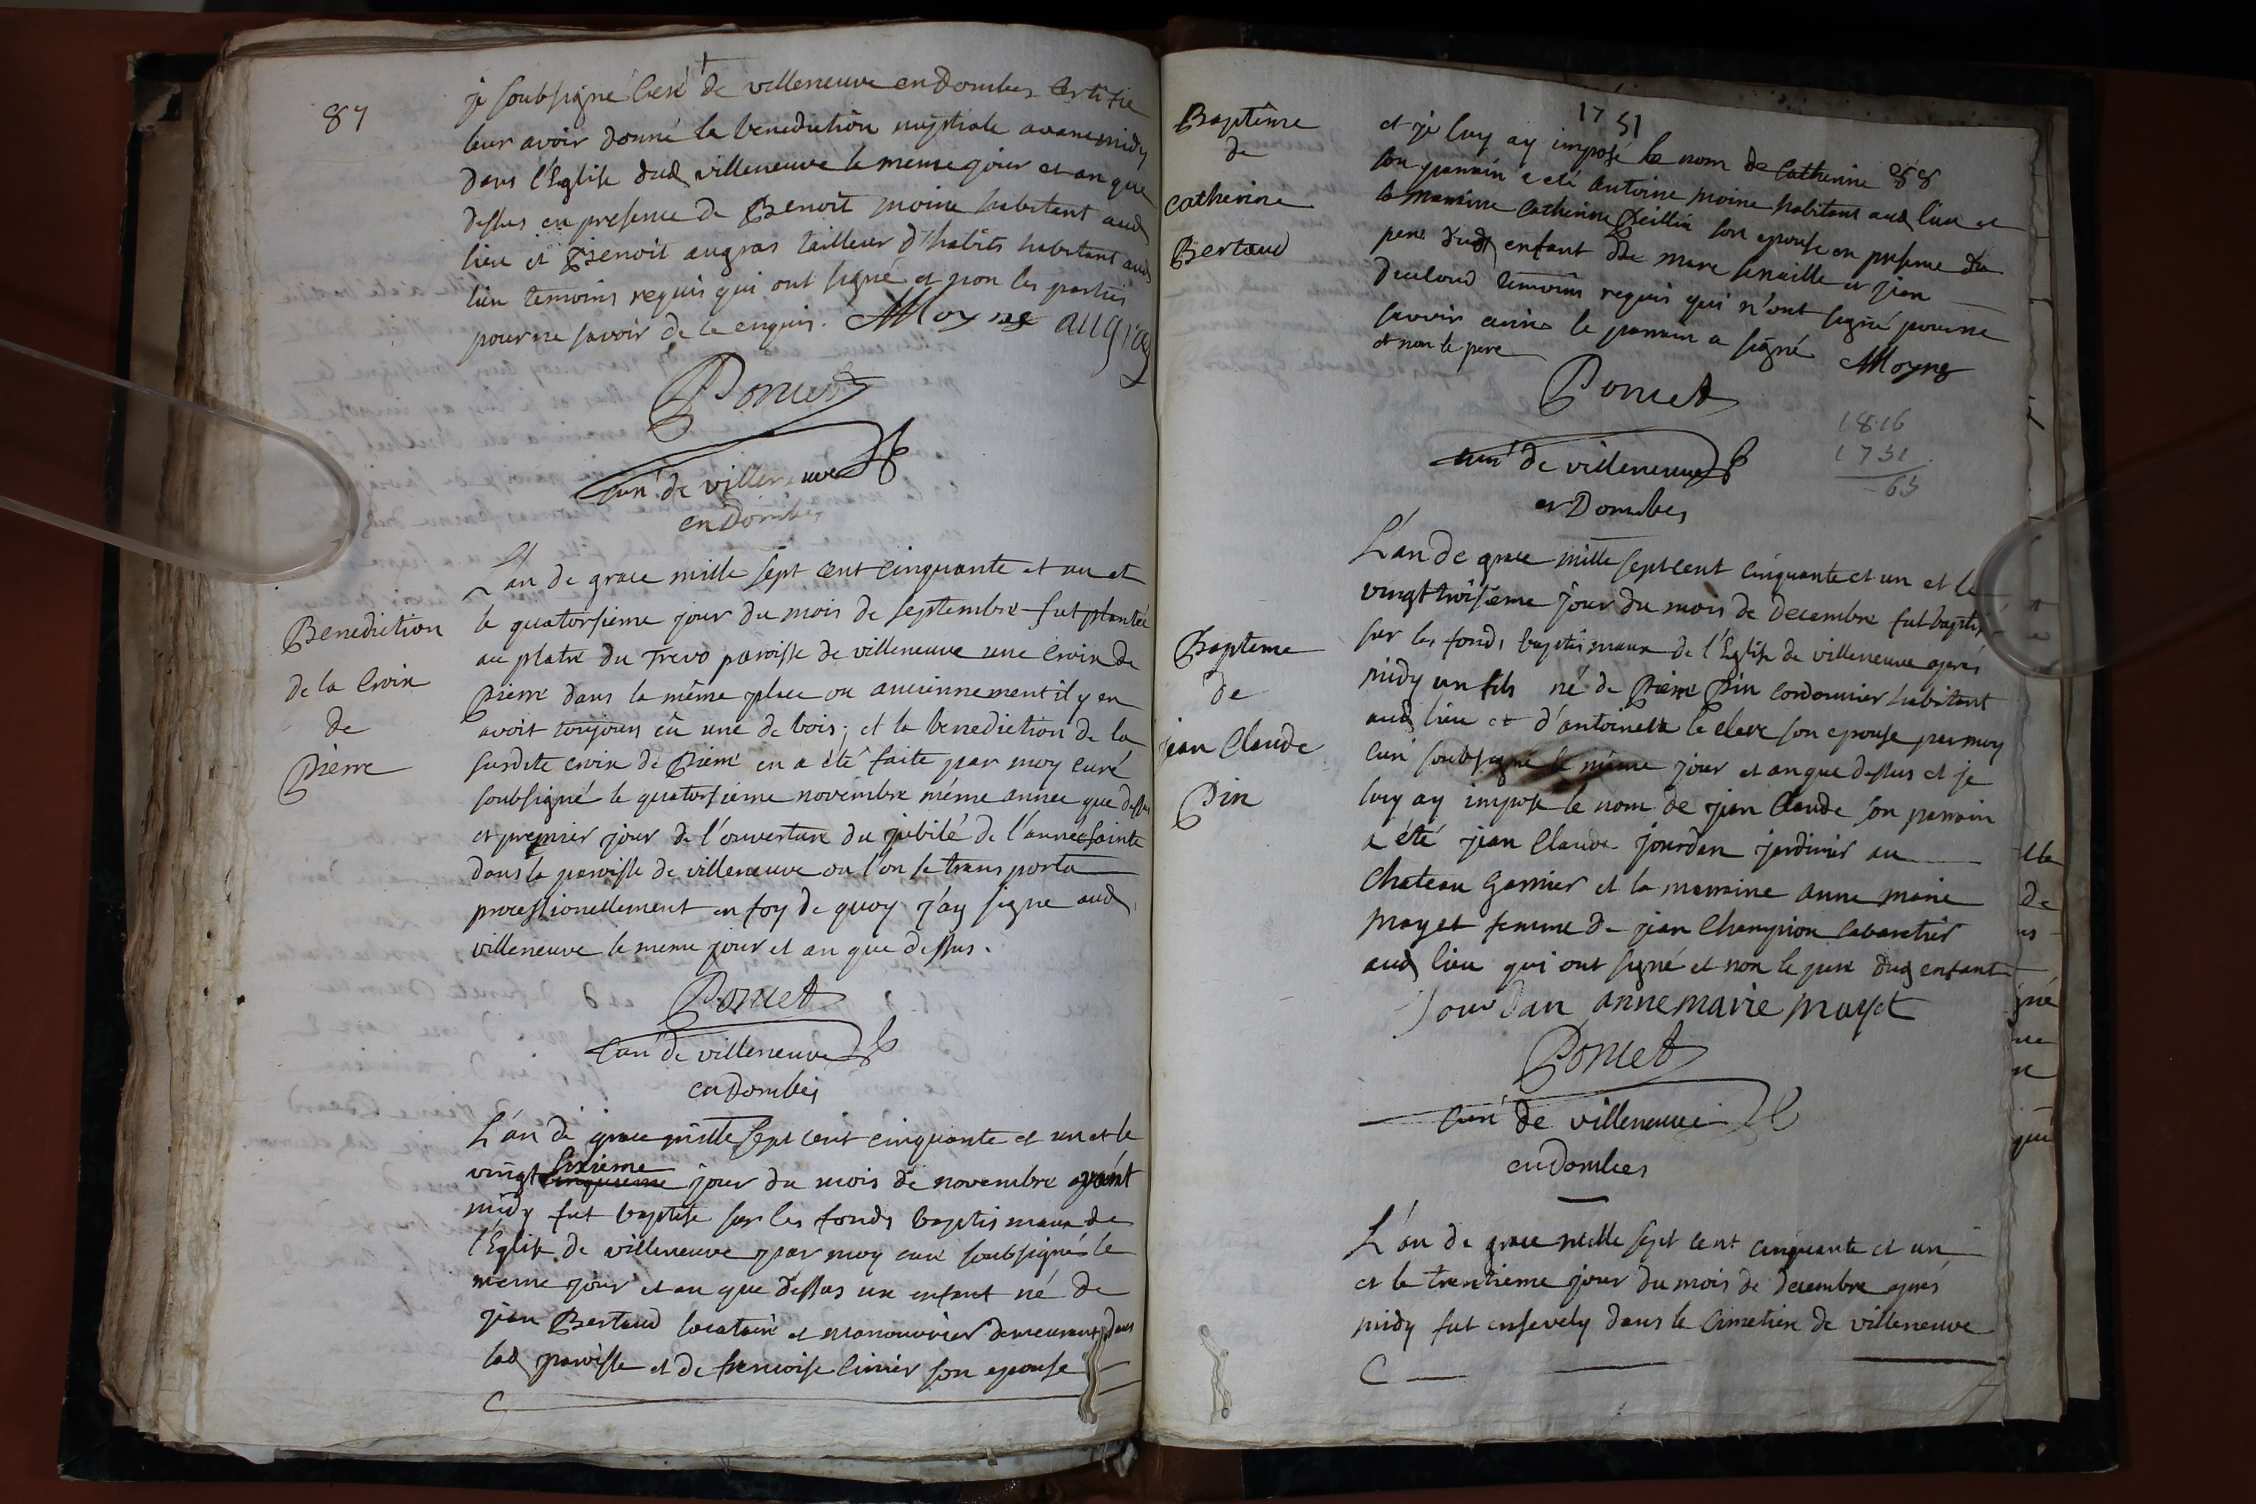 87
je soubsigné Curé de villeneuve en Dombes Certifie
leur avoir donné la benediction nuptiale avant midy
dans l'Eglise dud villeneuve le meme jour et an que
dessus en presence de Benoit moine habitant aud
lieu et Benoit augras tailleur d'habits habitant aud
lieu temoins requis qui ont signé et non les parties
pour ne savoir de ce enquis. Moyne augras
Poncet
curé de villeneuve
en Dombes
Benediction
de la Croix
de
Pierre
L'an de grace mille sept cent cinquante et un et
le quatorsieme jour du mois de septembre fut plantée
au platre du Trevo paroisse de villeneuve une Croix de
Pierre dans la même place ou anciennement il y en
avoit toujours eû une de bois; et la benediction de la
susdite croix de Pierre en a été faite par moy curé
soubsigné le quatorsieme novembre même annee que dessus
et premier jour de l'ouverture du jubilé de l'année sainte
dans la paroisse de villeneuve ou l'on se transporta
processionellement en foy de quoy j'ay signe aud
villeneuve le meme jour et an que dessus.
Poncet
curé de villeneuve
en Dombes
L'an de grace mille sept cent cinquante et un et le
vingt sixieme cinquieme jour du mois de novembre avant
midy fut baptisé sur les fonds baptismaux de
l'Eglise de villeneuve par moy curé soubsigné le
meme jour et an que dessus un enfant né de
jean Bertaud locataire et manouvrier demeurant dans
lad paroisse et de francoise Cinier son epouse
1751
88
Baptême
de
Catherine
Bertaud
et je luy ay imposé le nom de Catherine
son parrain a eté antoine moine habitant aud lieu et
la marraine Catherine son epouse en presence du
pere dud enfant De marc senaille et jean
temoins requis qui n'ont signé pour ne
savoir enquis le parrain a signé Moyne
et non le pere
Poncet
curé de villeneuve
en Dombes
1816
1751
65
Bapteme
de
jean Claude
Pin
L'an de grace mille sept cent cinquante et un et le
vingt troisieme jour du mois de decembre fut baptisé
sur les fonds baptismaux de l'Eglise de villeneuve aprés
midy un fils né de Pierre Pin Cordonnier habitant
aud lieu et d'antoinette le clerc son epouse par moy
curé soubsigné le même jour et an que dessus et je
luy ay imposé le nom de jean Claude son parrain
a été jean Claude jourdan jardinier au
Chateau Garnier et la marraine anne marie
mayet femme de jean Champion Cabaretier
aud lieu qui ont signé et non le pere dud enfant
Jourdan anne marie mayet
Poncet
curé de villeneuve
en Dombes
L'an de grace mille sept cent cinquante et un
et le trentieme jour du mois de decembre aprés
midy fut ensevely dans le Cimetiere de villeneuve